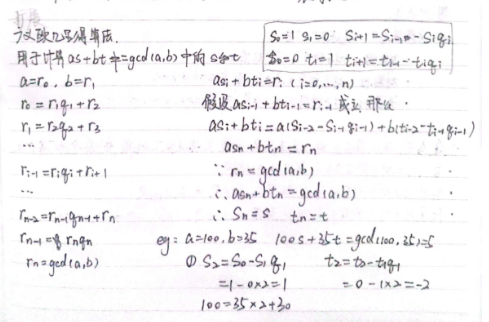 广义欧几里得算法.
用于计算as+bt=gcd(a,b)中的s和t
S₀=1 S₁=0 Sᵢ₊₁=Sᵢ₋₁-Sᵢqᵢ
t₀=0 t₁=1 tᵢ₊₁=tᵢ₋₁-tᵢqᵢ
a=r₀, b=r₁
r₀=r₁q₁+r₂
r₁=r₂q₂+r₃
...
rᵢ₋₁=rᵢqᵢ+rᵢ₊₁
...
rₙ₋₂=rₙ₋₁qₙ₋₁+rₙ
rₙ₋₁=rₙqₙ
rₙ=gcd(a,b)
asᵢ+btᵢ=rᵢ (i=0,...,n)
假设asᵢ₋₁+btᵢ₋₁=rᵢ₋₁成立 那么
asᵢ+btᵢ=a(Sᵢ₋₂-Sᵢ₋₁qᵢ₋₁)+b(tᵢ₋₂-tᵢ₋₁qᵢ₋₁)
asₙ+btₙ=rₙ
∵ rₙ=gcd(a,b)
∴ asₙ+btₙ=gcd(a,b)
∴ Sₙ=s tₙ=t
eg: a=100, b=35 100s+35t=gcd(100,35)=5
① S₂=S₀-S₁q₁ t₂=t₀-t₁q₁
=1-0×2=1 =0-1×2=-2
100=35×2+30